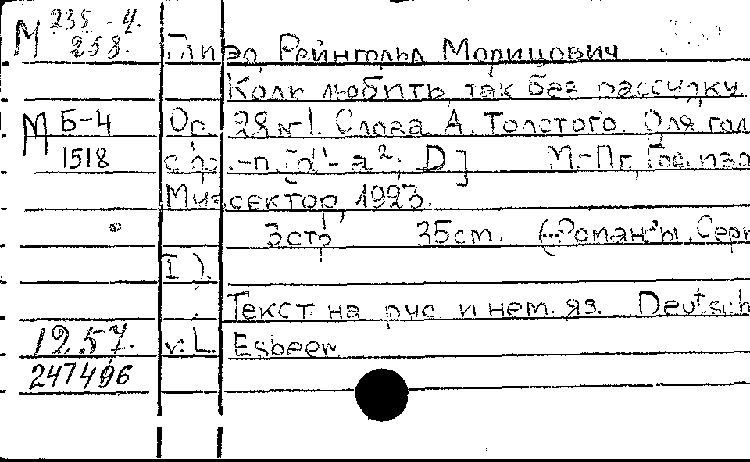 М 235-4.
258.
Глиэр, Рейнгольд Морицович
Коль любить, так без рассудку.
М Б-4
1518
Ор. 28 №1. Слова А. Толстого. Для гол
с фп. [d¹-a²; D] М.-Пг, Гос. изд
Музсектор, 1923.
3стр 35cm. (Романсы. Сери
I).
Текст на рус и нем. яз. Deutsch
v. L. Esbeer
1957.
247496